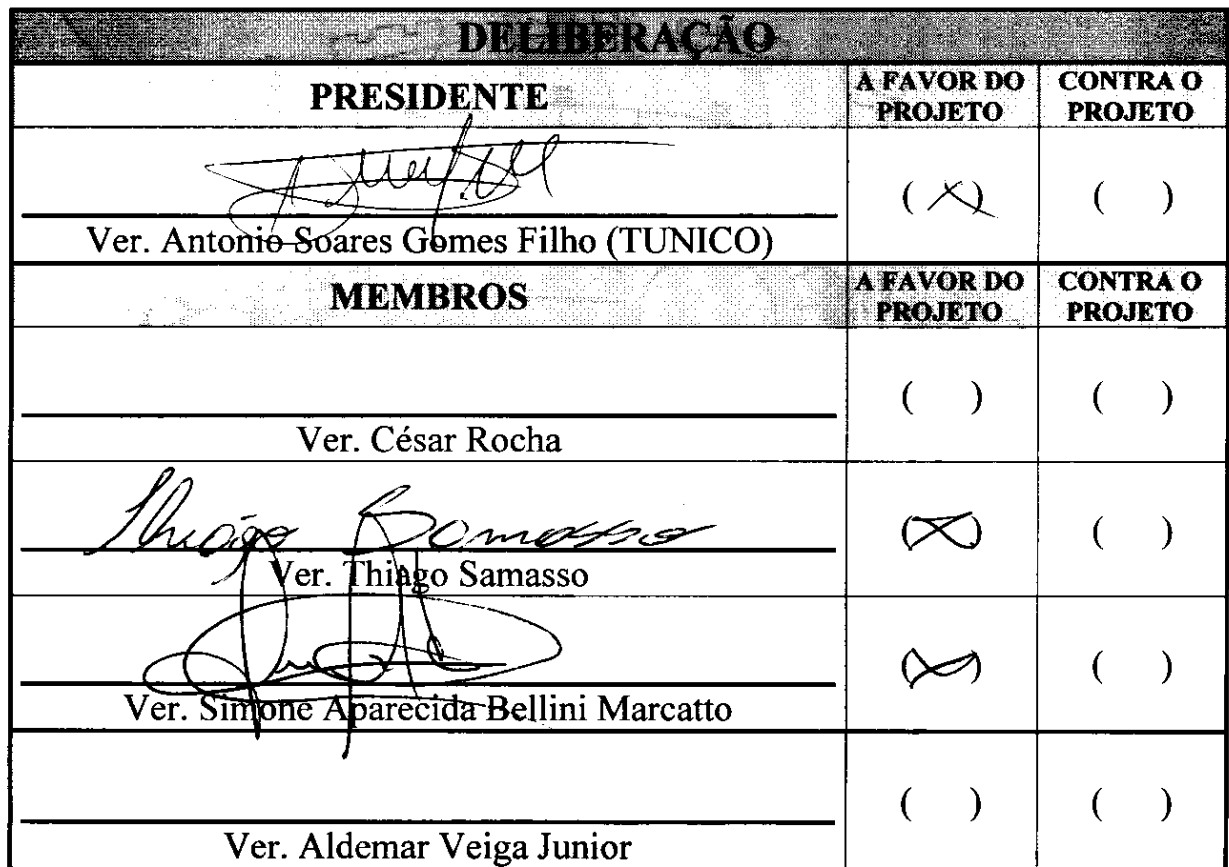 DELIBERAÇÃO
PRESIDENTE
A FAVOR DO PROJETO
CONTRA O PROJETO
Ver. Antonio Soares Gomes Filho (TUNICO)
( X )
( )
MEMBROS
A FAVOR DO PROJETO
CONTRA O PROJETO
Ver. César Rocha
( )
( )
Thiago Samasso
Ver. Thiago Samasso
( X )
( )
Ver. Simone Aparecida Bellini Marcatto
( X )
( )
Ver. Aldemar Veiga Junior
( )
( )